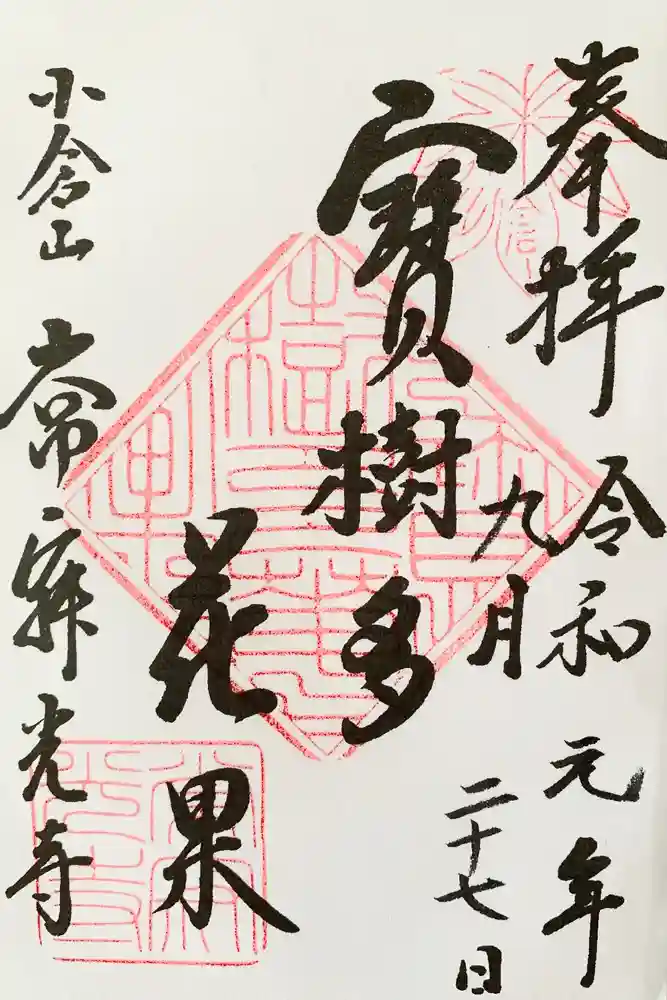 奉拝
令和元年
九月
二十七日
寳樹多
花果
小倉山
常寂光寺